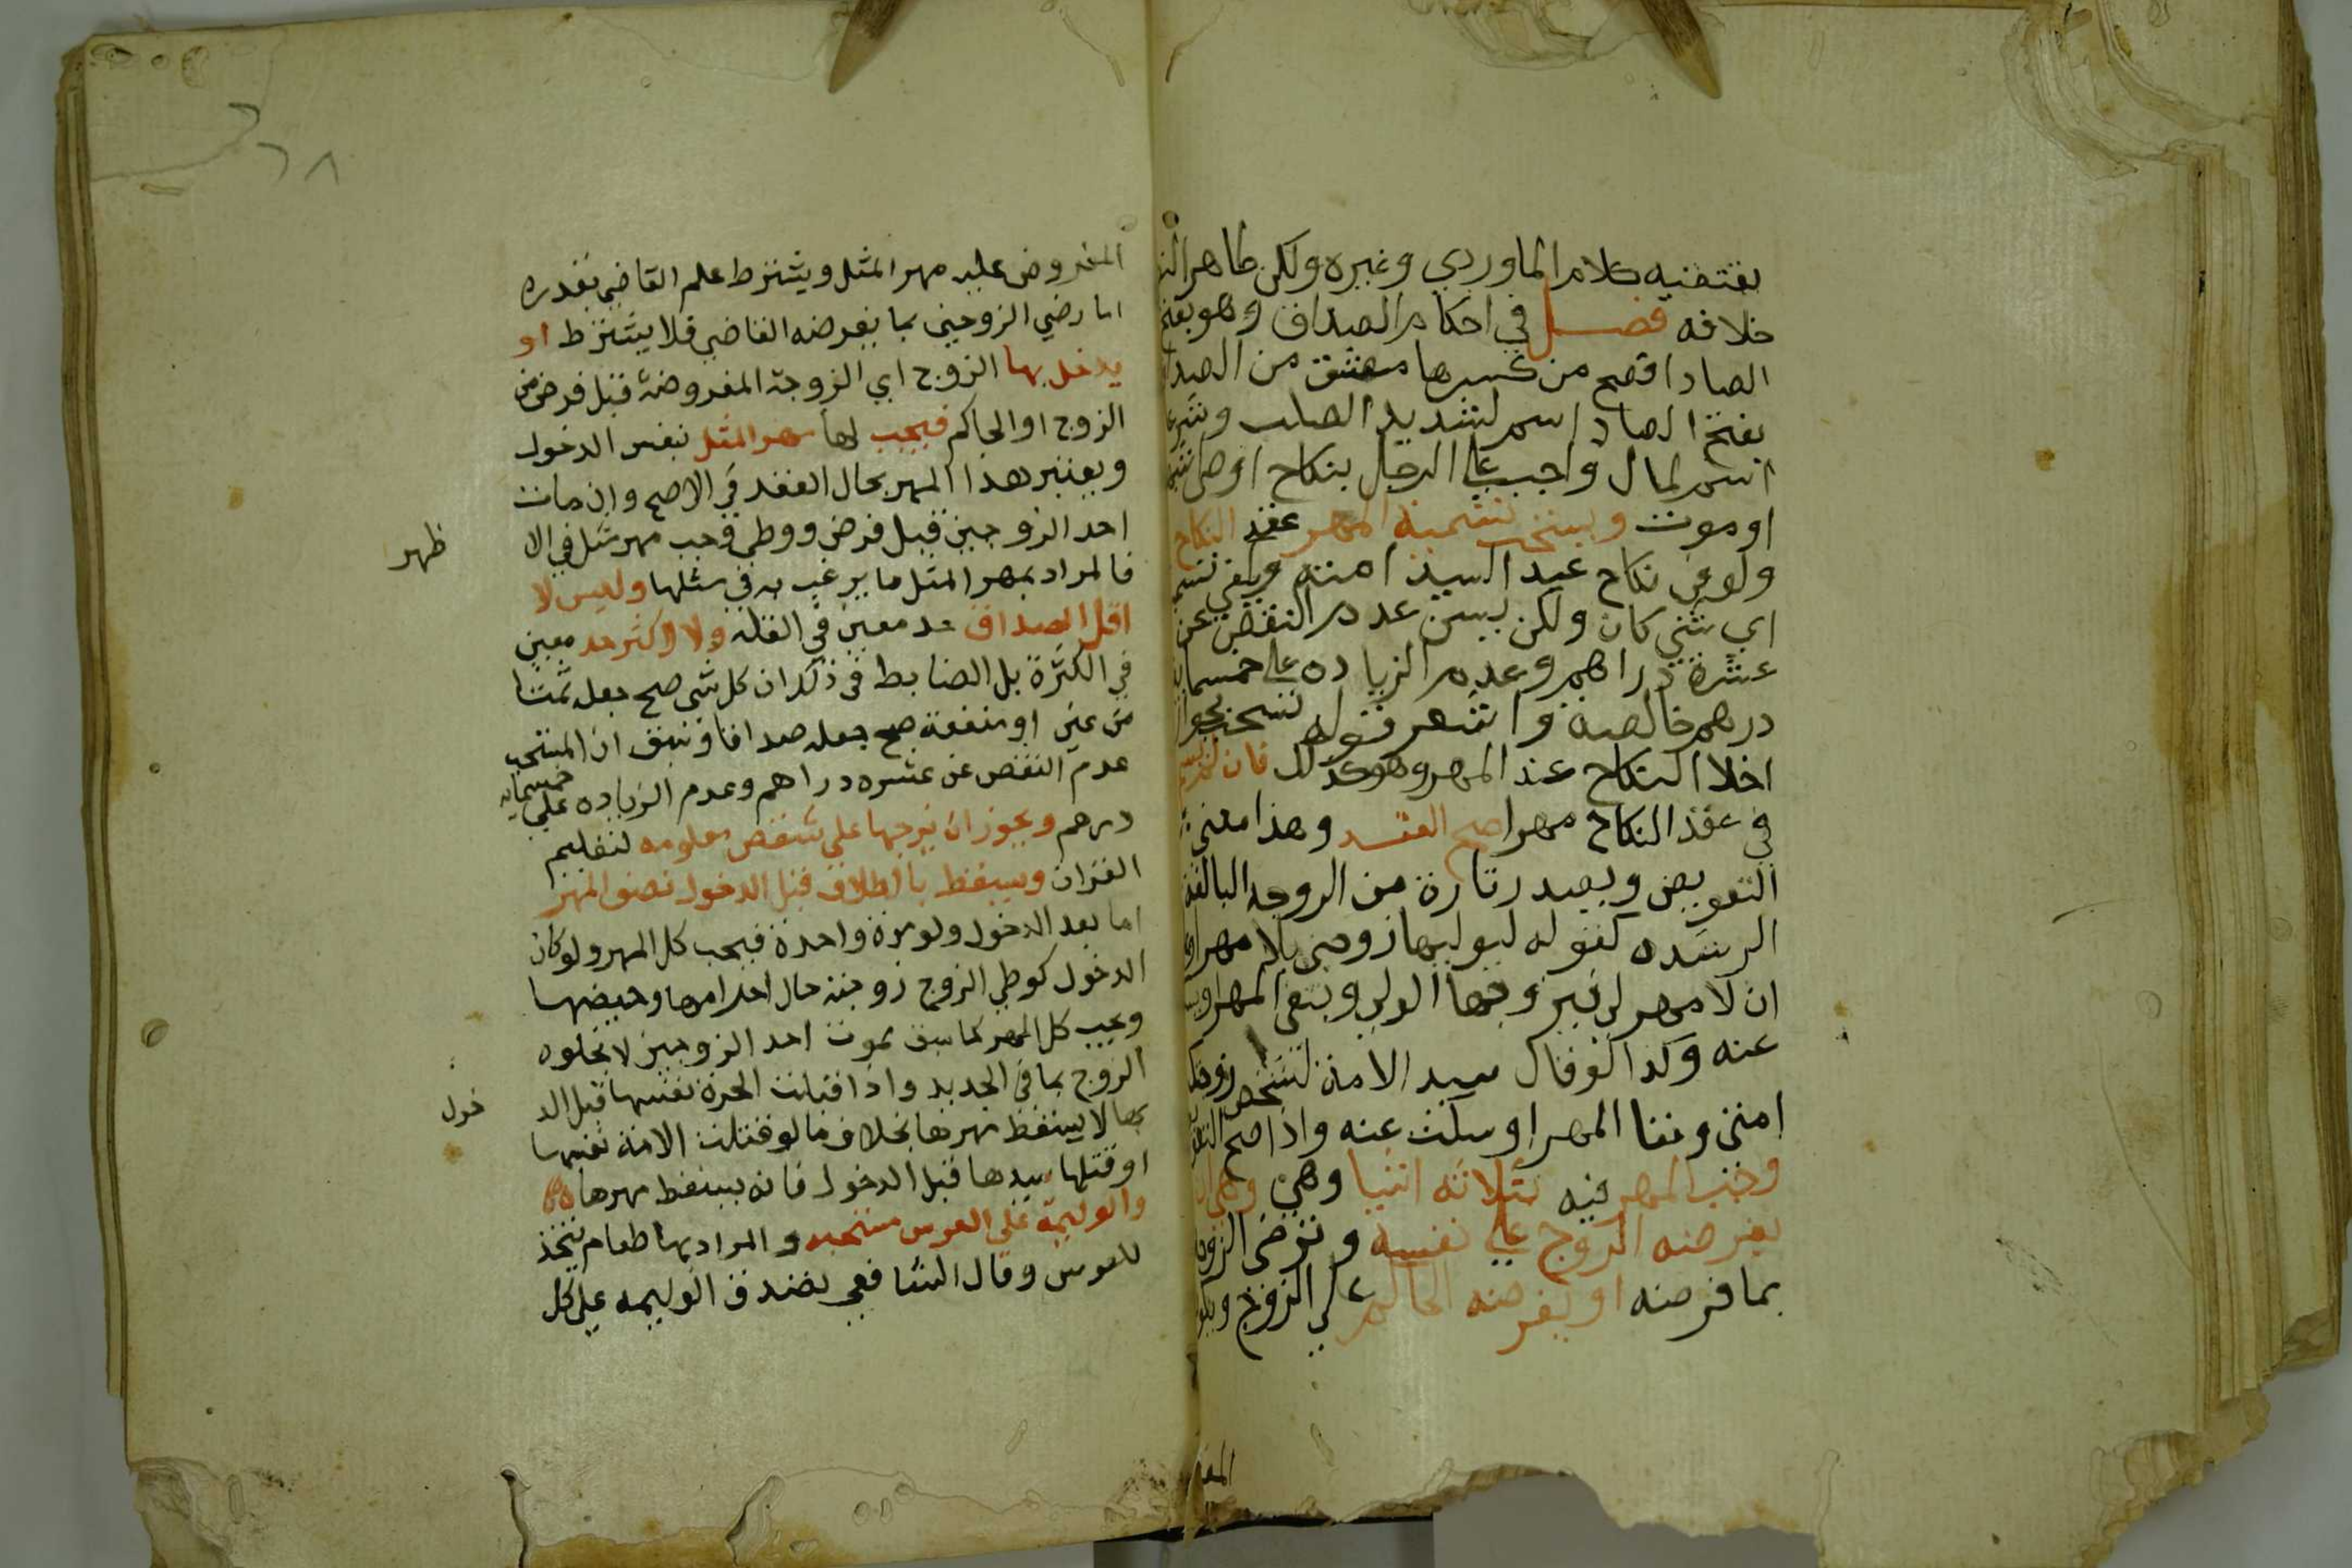 يقتضيه كلام الماوردي وغيره ولكن ظاهر
خلافه فصل في احكام الصداق وهو بفتح
الصاد افصح من كسرها مشتق من الصدق
بفتح الصاد اسم لشديد الصلب وشرعا
اسم لمال واجب على الرجل بنكاح او وطئ شبهة
او موت ويستحب تسمية المهر عقد النكاح
ولو في نكاح عبد السيد امته ويكفي تسمية
اي شي كان ولكن يسن عدم النقص عن
عشرة دراهم وعدم الزيادة على خمسماية
درهم خالصة واشعر قوله يستحب بجواز
اخلا النكاح عند المهر وهو كذلك فان لم يسم
في عقد النكاح مهرا صح العقد وهذا معنى
التفويض ويصدر تارة من الزوجه البالغة
الرشيده كقوله لوليها زوجني بلا مهر او
ان لا مهر لي فيزوجها الولي وينفي المهر او يسكت
عنه وكذا لو قال سيد الامة لشخص زوجتك
امتي ونفا المهر او سكت عنه واذا صح التفويض
وجب المهر فيه بثلاثه اشيا وهي
يفرضه الزوج على نفسه وترضى الزوجة
بما فرضه او يفرضه الحاكم على الزوج ويكون
المفر
٦٨
المفروض عليه مهر المثل ويشترط علم القاضي بقدره
اما رضي الزوجين بما يفرضه القاضي فلا يشترط او
يدخل بها الزوج اي الزوجة المفروضة قبل فرض من
الزوج او الحاكم فيجب لها مهر المثل بنفس الدخول
ويعتبر هذا المهر بحال العقد في الاصح وان مات
احد الزوجين قبل فرض ووطي وجب مهر مثل في الا
ظهر
فالمراد بمهر المثل ما يرغب به في مثلها وليس لا
اقل الصداق حد معين في القلة ولا اكثر حد معين
في الكثرة بل الضابط في ذلك ان كل شي صح جعله ثمنا
من عين او منفعة صح جعله صداقا وسبق ان المستحب
عدم النقص عن عشره دراهم وعدم الزياده على خمسمايه
درهم ويجوز ان يزوجها على منفعة معلومه لتعليم
القران ويسقط باالطلاق قبل الدخول نصف المهر
اما بعد الدخول ولو مرة واحدة فيجب كل المهر ولو كان
الدخول كوطي الزوج زوجته حال احرامها وحيضها
ويجب كل المهر كما سبق بموت احد الزوجين لا بخلوه
الزوج بها في الجديد واذا قتلت الحرة نفسها قبل الد
خول
بها لا يسقط مهرها بخلاف ما لو قتلت الامة نفسها
او قتلها سيدها قبل الدخول فانه يسقط مهرها
والوليمة على العرس مستحبه والمراد بها طعام يتخذ
للعرس وقال الشافعي تصدق الوليمه على كل